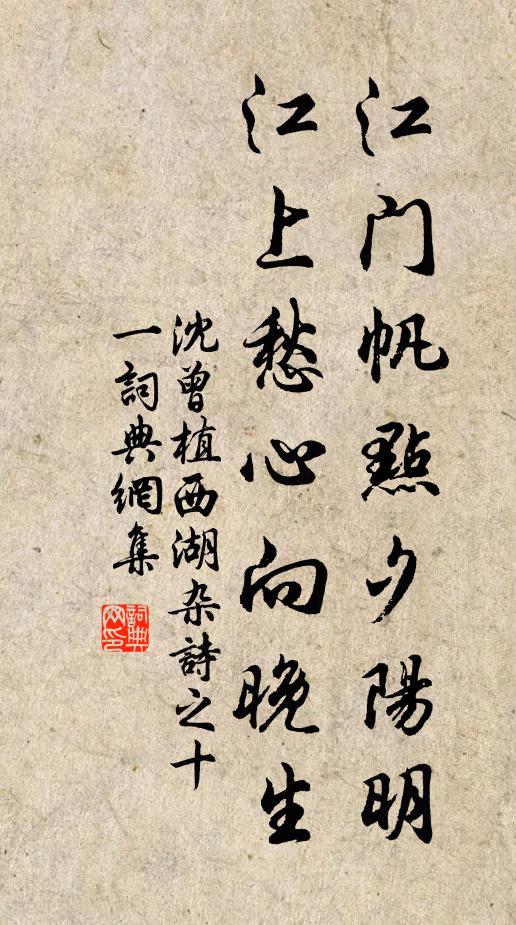 江门帆點夕陽明
江上愁心向晚生
沈曾植西湖杂詩之十
一詞典網集
詞典
网印